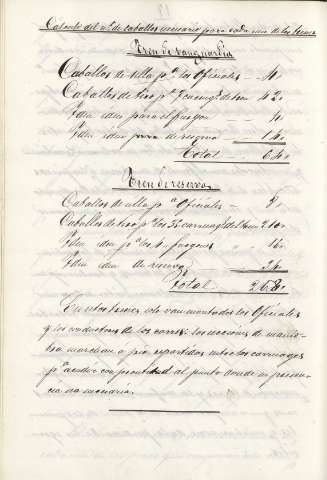 Calculo del nº de caballos necesario para cada uno de los trenes
Tren de vanguardia
Caballos de silla pª los Oficiales - 4
Caballos de tiro pª 7 carruag.s del tren 42
Idem idem para el furgon - 4
Idem idem para de reserva - 14
Total - 64
Tren de reserva
Caballos de silla pª Oficiales - 8
Caballos de tiro pª los 35 carruag.s del tren 210
Idem idem pª los 4 furgones " 16
Idem idem de reserva 34
Total 268
En estos trenes solo van montados los Oficiales
y los conductores de los carros: las secciones de manio-
bra marchan a pie repartidas entre los carruages
pª acudir con prontitud al punto donde su presen-
cia sea necesaria.